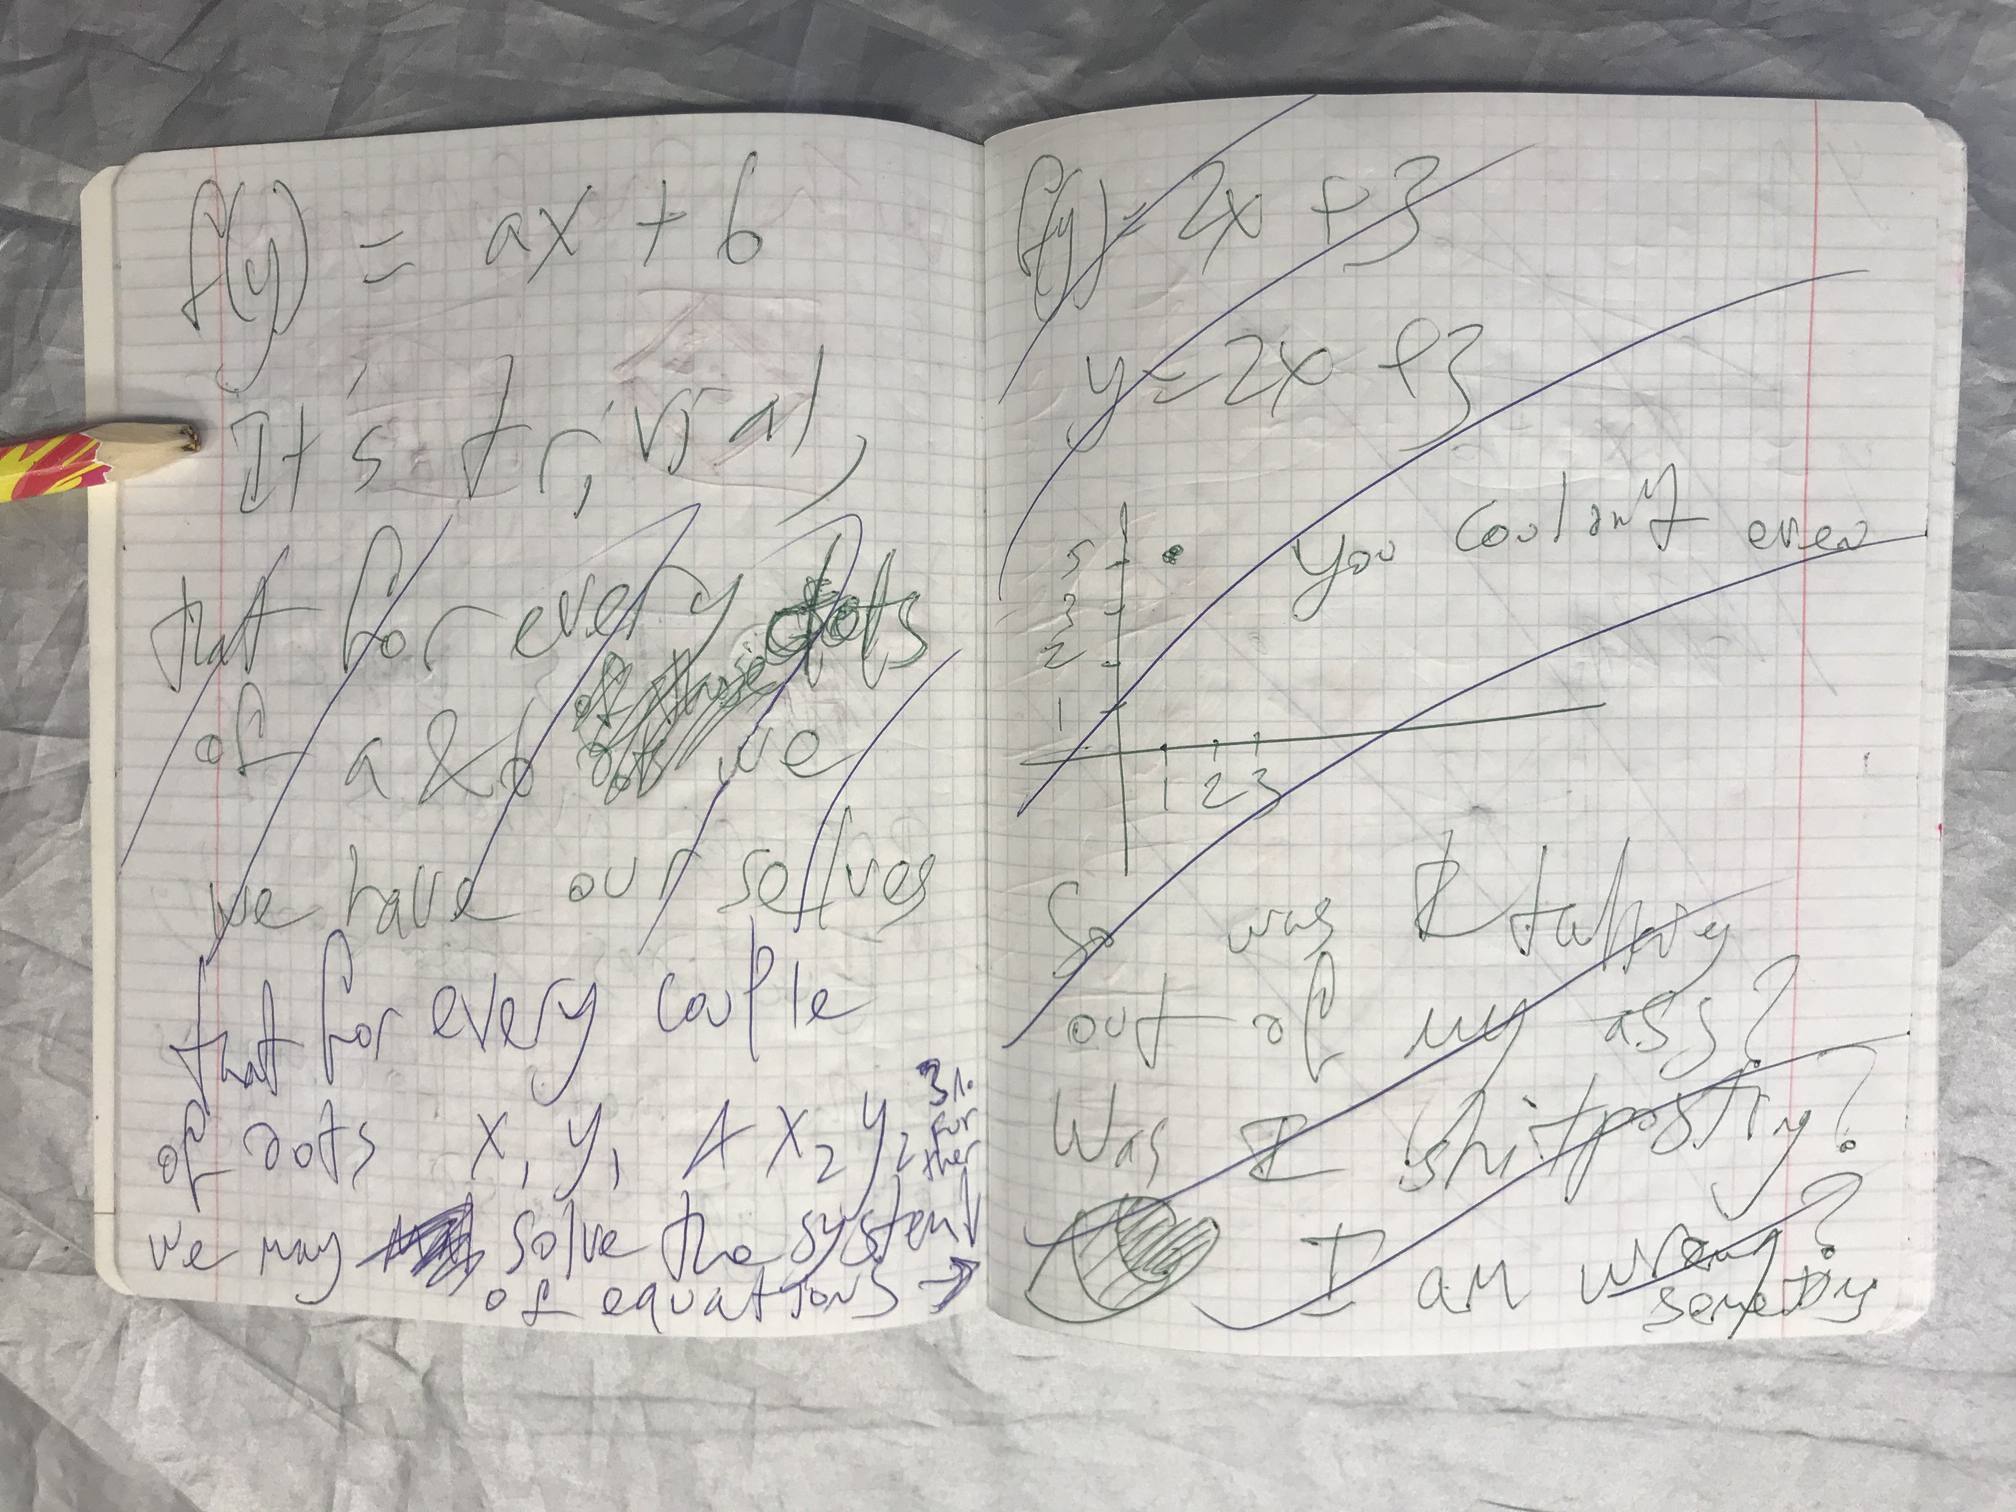 f(y) = ax + b
It's trivial,
that for every dots
of a & b we
we have our selves
that for every couple
of dots x₁ y₁ & x₂ y₂
we may solve the system
of equations →
3). further ↓
f(y) = 2x + 3
y = 2x + 3
5
3
2
1
1 2 3
You couldn't even
So was I talking
out of my ass?
Was I shitposting?
I am wrong?